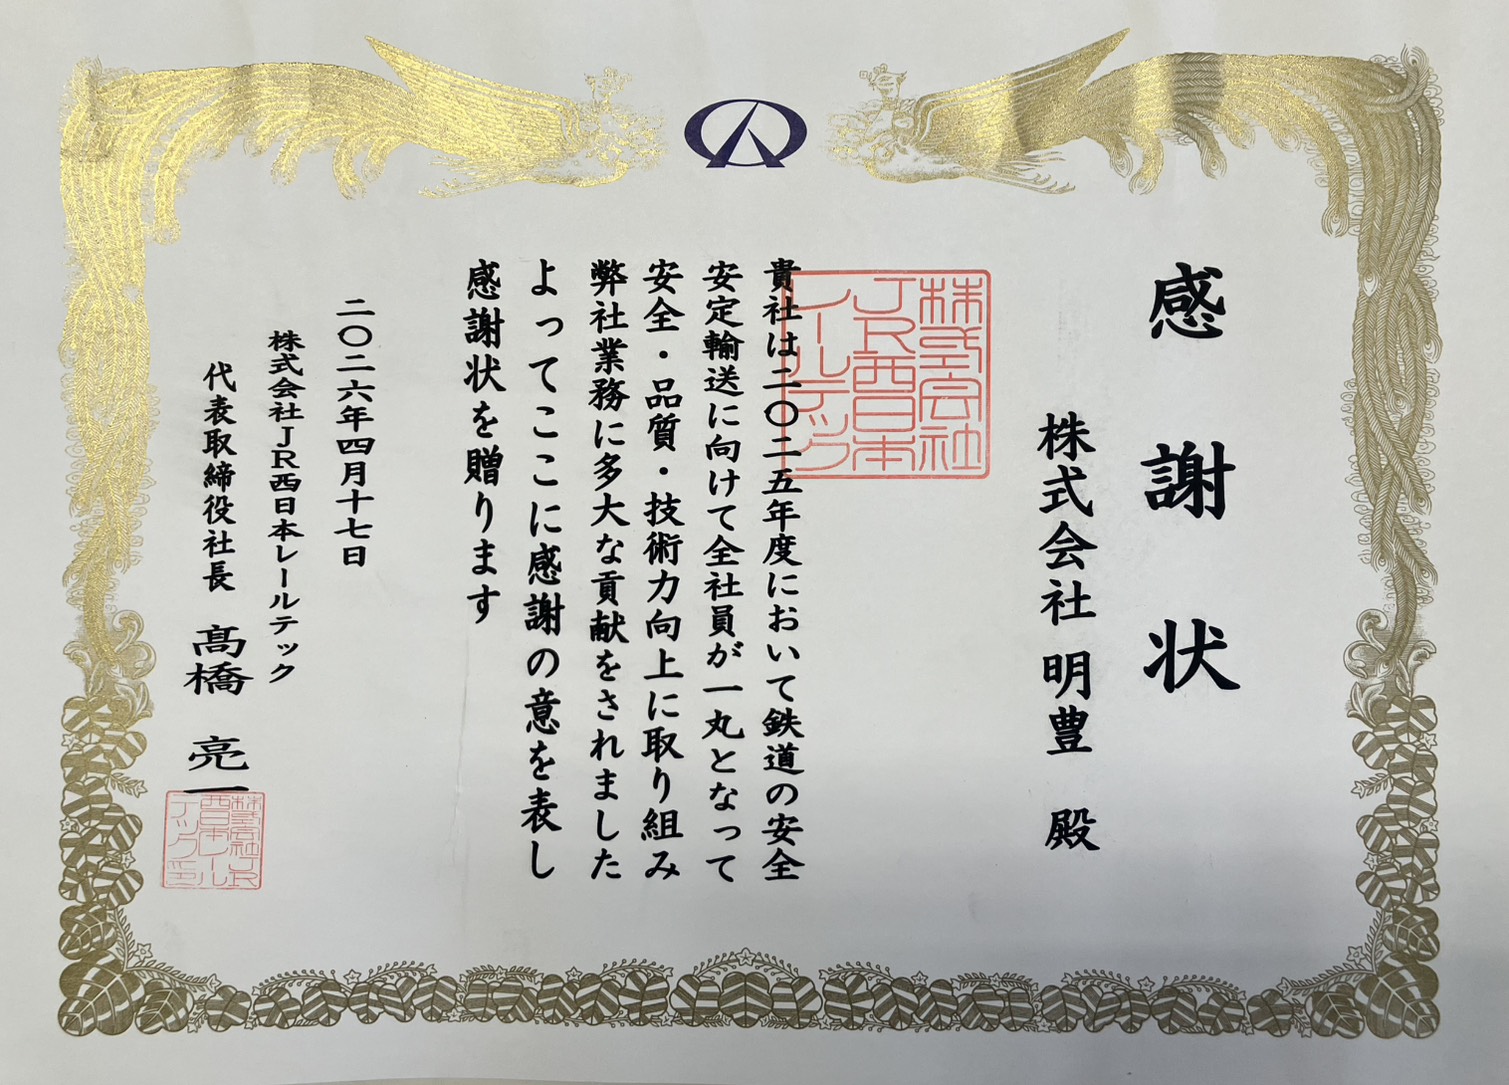 感謝状
株式会社 明豊 殿
貴社は二〇二五年度において鉄道の安全
安定輸送に向けて全社員が一丸となって
安全・品質・技術力向上に取り組み
弊社業務に多大な貢献をされました
よってここに感謝の意を表し
感謝状を贈ります
二〇二六年四月十七日
株式会社JR西日本レールテック
代表取締役社長 髙橋 亮一
株式会社
JR西日本
レールテック
株式会社JR
西日本レール
テック印